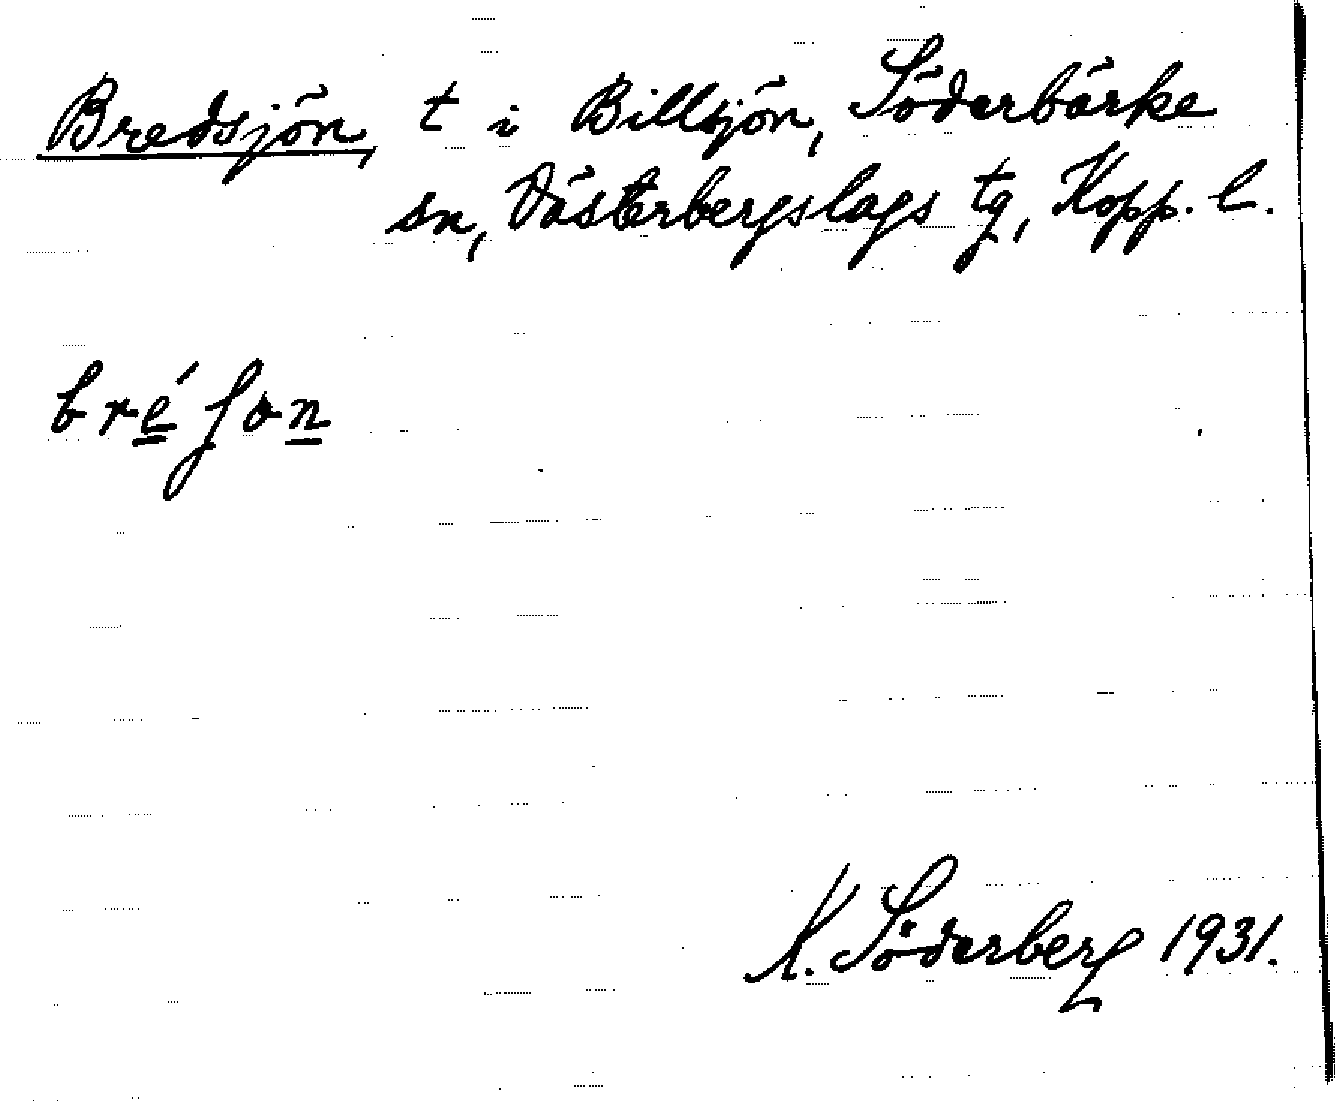 Bredsjön, t i Billsjön, Söderbärke
sn, Västerbergslags tg, Kopp. l.
bréʃon
K. Söderberg 1931.